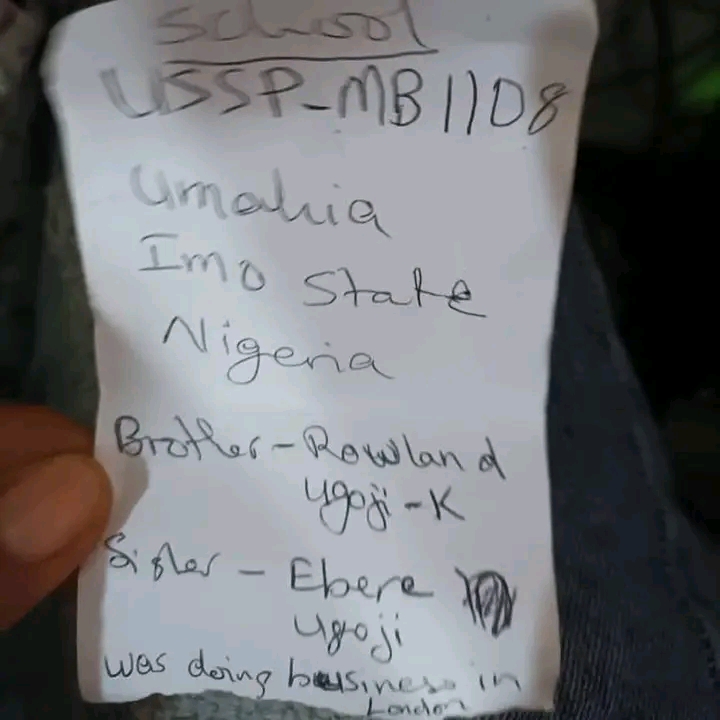 School
USSP-MB 1108
Umahia
Imo State
Nigeria
Brother - Rowland
Ugoji - K
Sister - Ebere
Ugoji
was doing business in
London